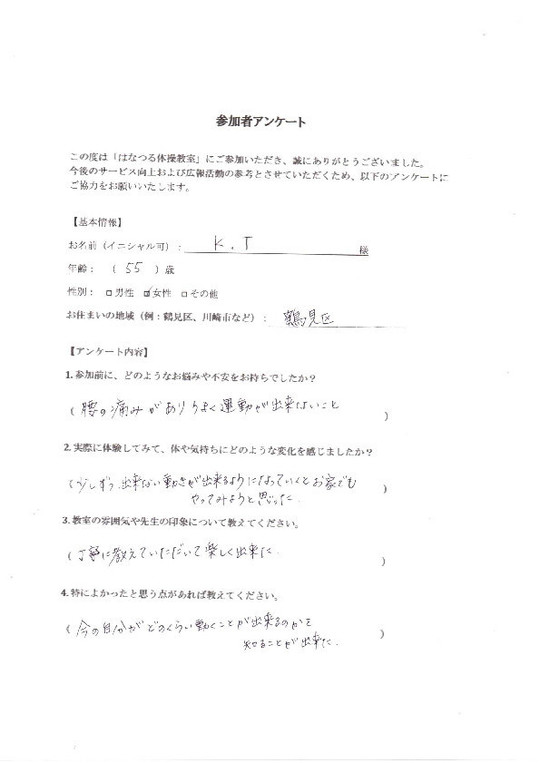 参加者アンケート
この度は「はなつる体操教室」にご参加いただき、誠にありがとうございました。
今後のサービス向上および広報活動の参考とさせていただくため、以下のアンケートに
ご協力をお願いいたします。
【基本情報】
お名前（イニシャル可）： K.T 様
年齢：（ 55 ）歳
性別：□男性 ☑女性 □その他
お住まいの地域（例：鶴見区、川崎市など）： 鶴見区
【アンケート内容】
1. 参加前に、どのようなお悩みや不安をお持ちでしたか？
（腰の痛みがあり うまく運動が出来ないこと ）
2. 実際に体験してみて、体や気持ちにどのような変化を感じましたか？
（少しずつ出来ない動きが出来るようになっていくとお家でも
やってみようと思った. ）
3. 教室の雰囲気や先生の印象について教えてください。
（丁寧に教えていただいて楽しく出来た. ）
4. 特によかったと思う点があれば教えてください。
（今の自分がどのくらい動くことが出来るのかを
知ることが出来た. ）